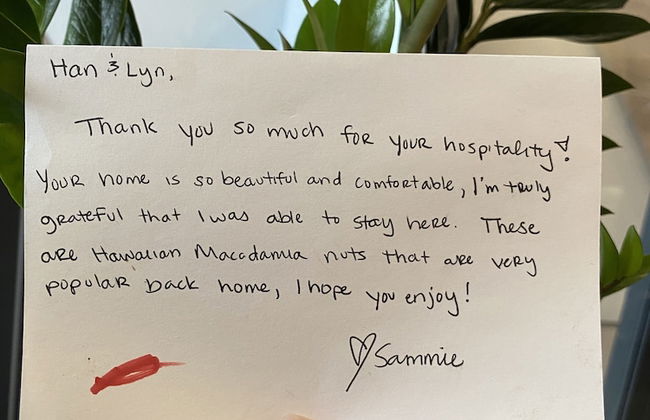 Han & Lyn,
Thank you so much for your hospitality!
Your home is so beautiful and comfortable, I'm truly
grateful that I was able to stay here. These
are Hawaiian Macadamia nuts that are very
popular back home, I hope you enjoy!
♡Sammie